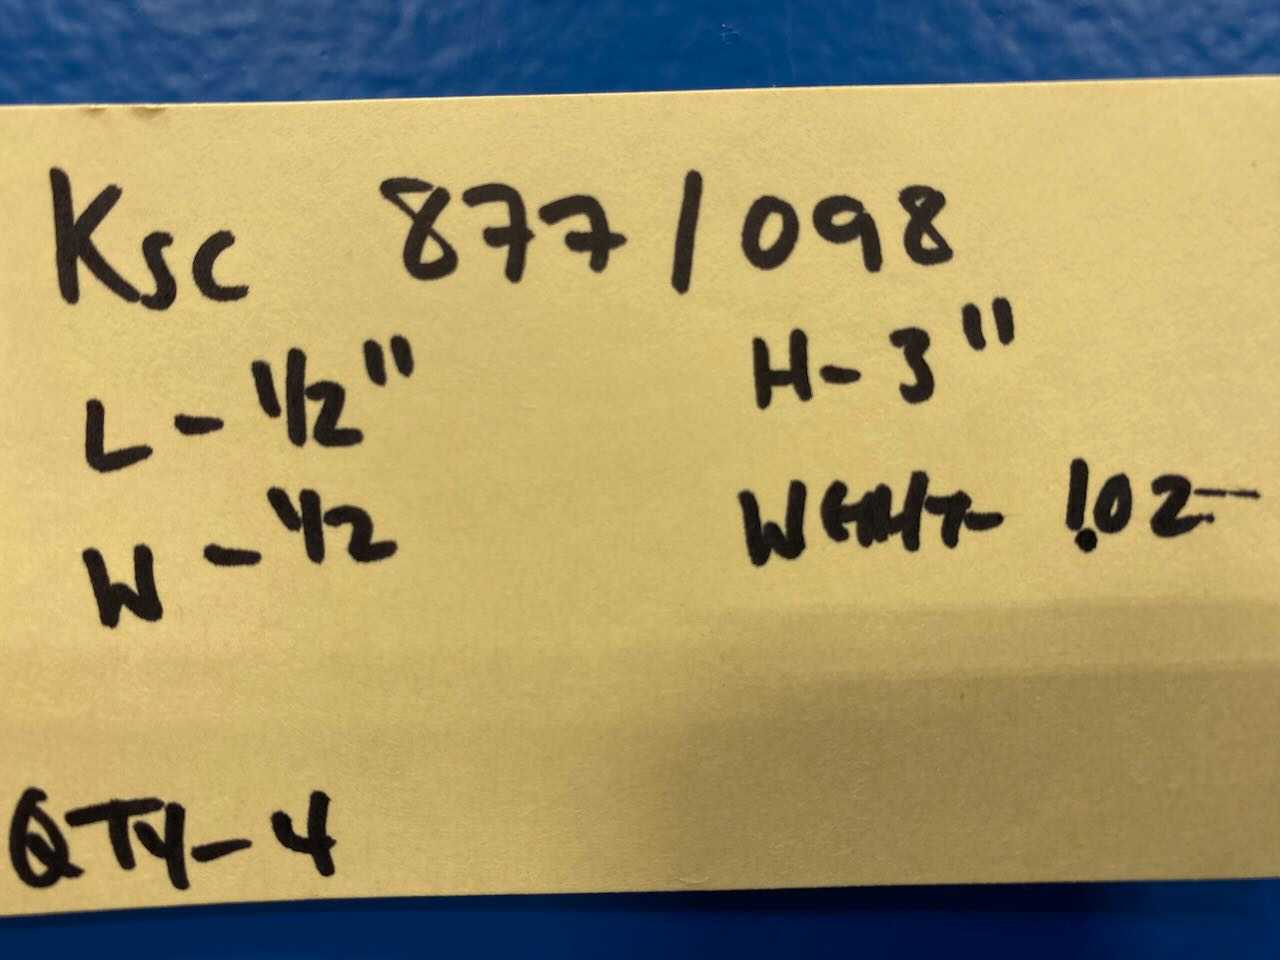 Ksc 877/098
L - 1/2" H- 3"
W - 1/2 1.02
QTY- 4